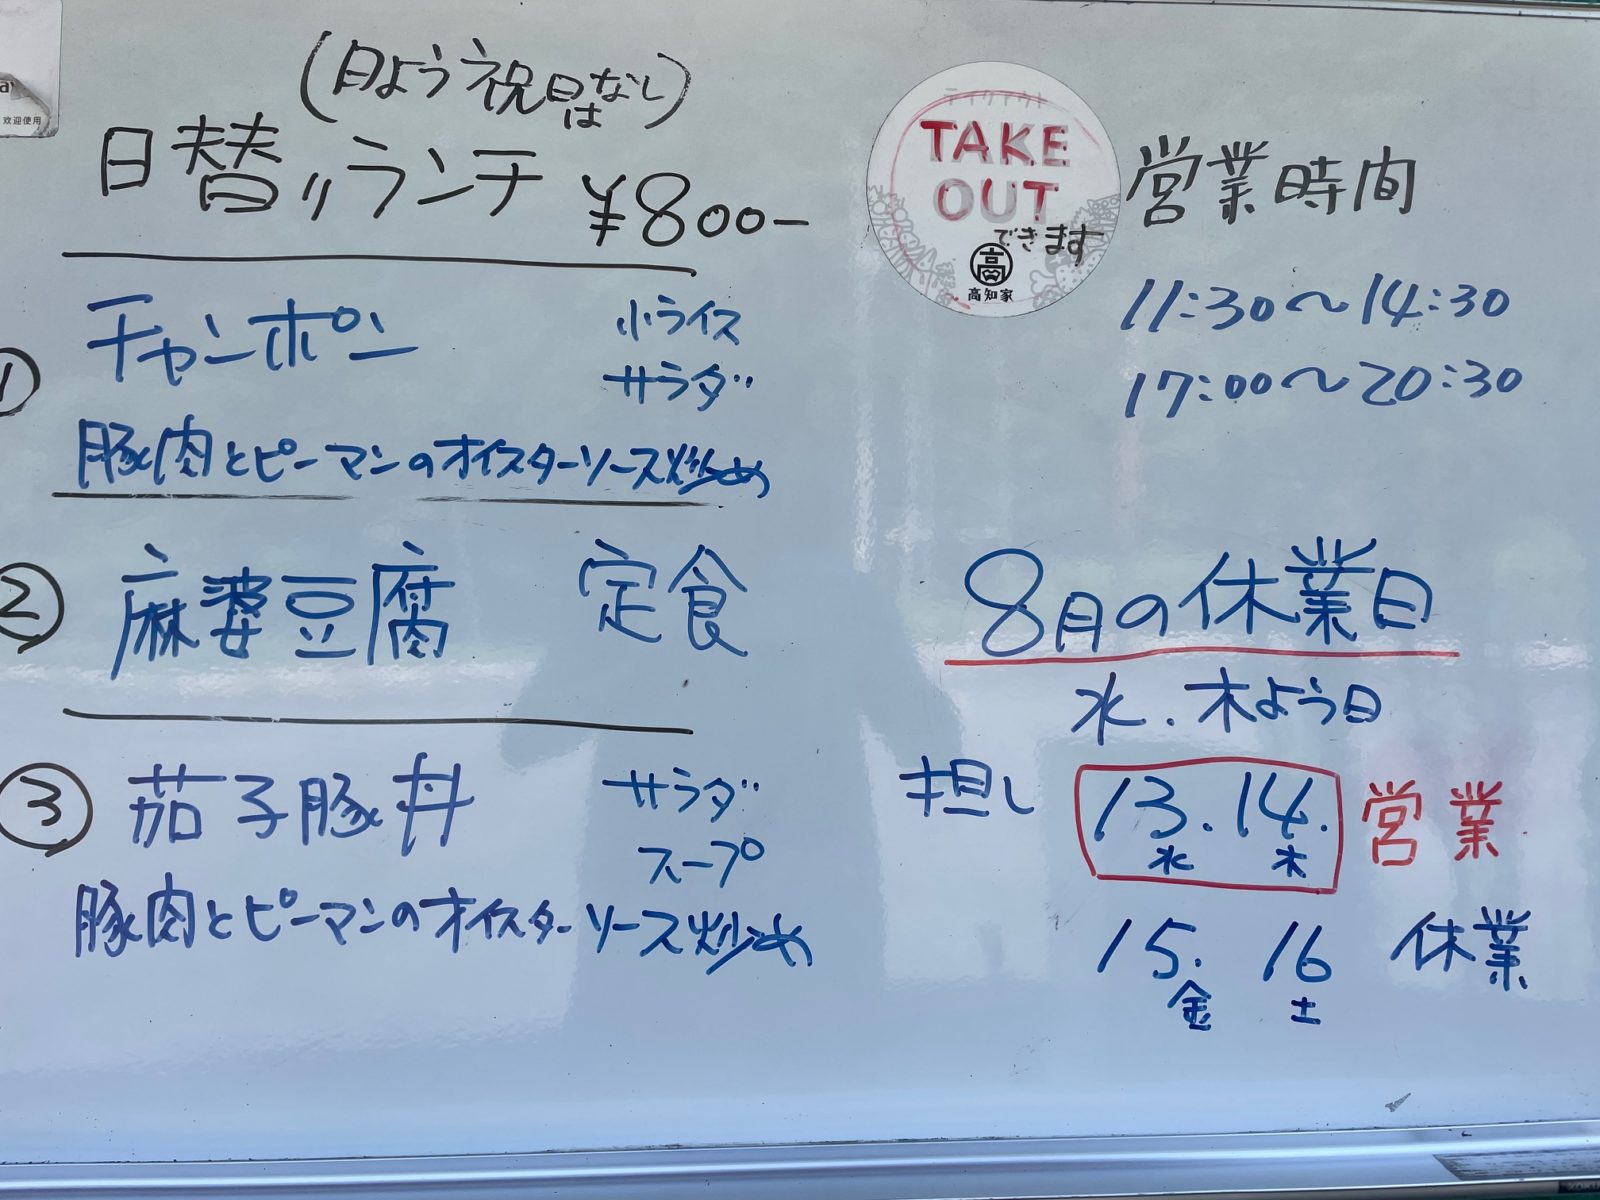 (日よう祝日はなし)
日替りランチ ¥800-
① チャンポン 小ライス
サラダ
豚肉とピーマンのオイスターソース炒め
② 麻婆豆腐 定食
③ 茄子豚丼 サラダ
スープ
豚肉とピーマンのオイスターソース炒め
欢迎使用
テイクアウト
TAKE
OUT
できます
高
高知家
営業時間
11:30〜14:30
17:00〜20:30
8月の休業日
水.木よう日
担し 13.14. 営業
水 木
15. 16 休業
金 土